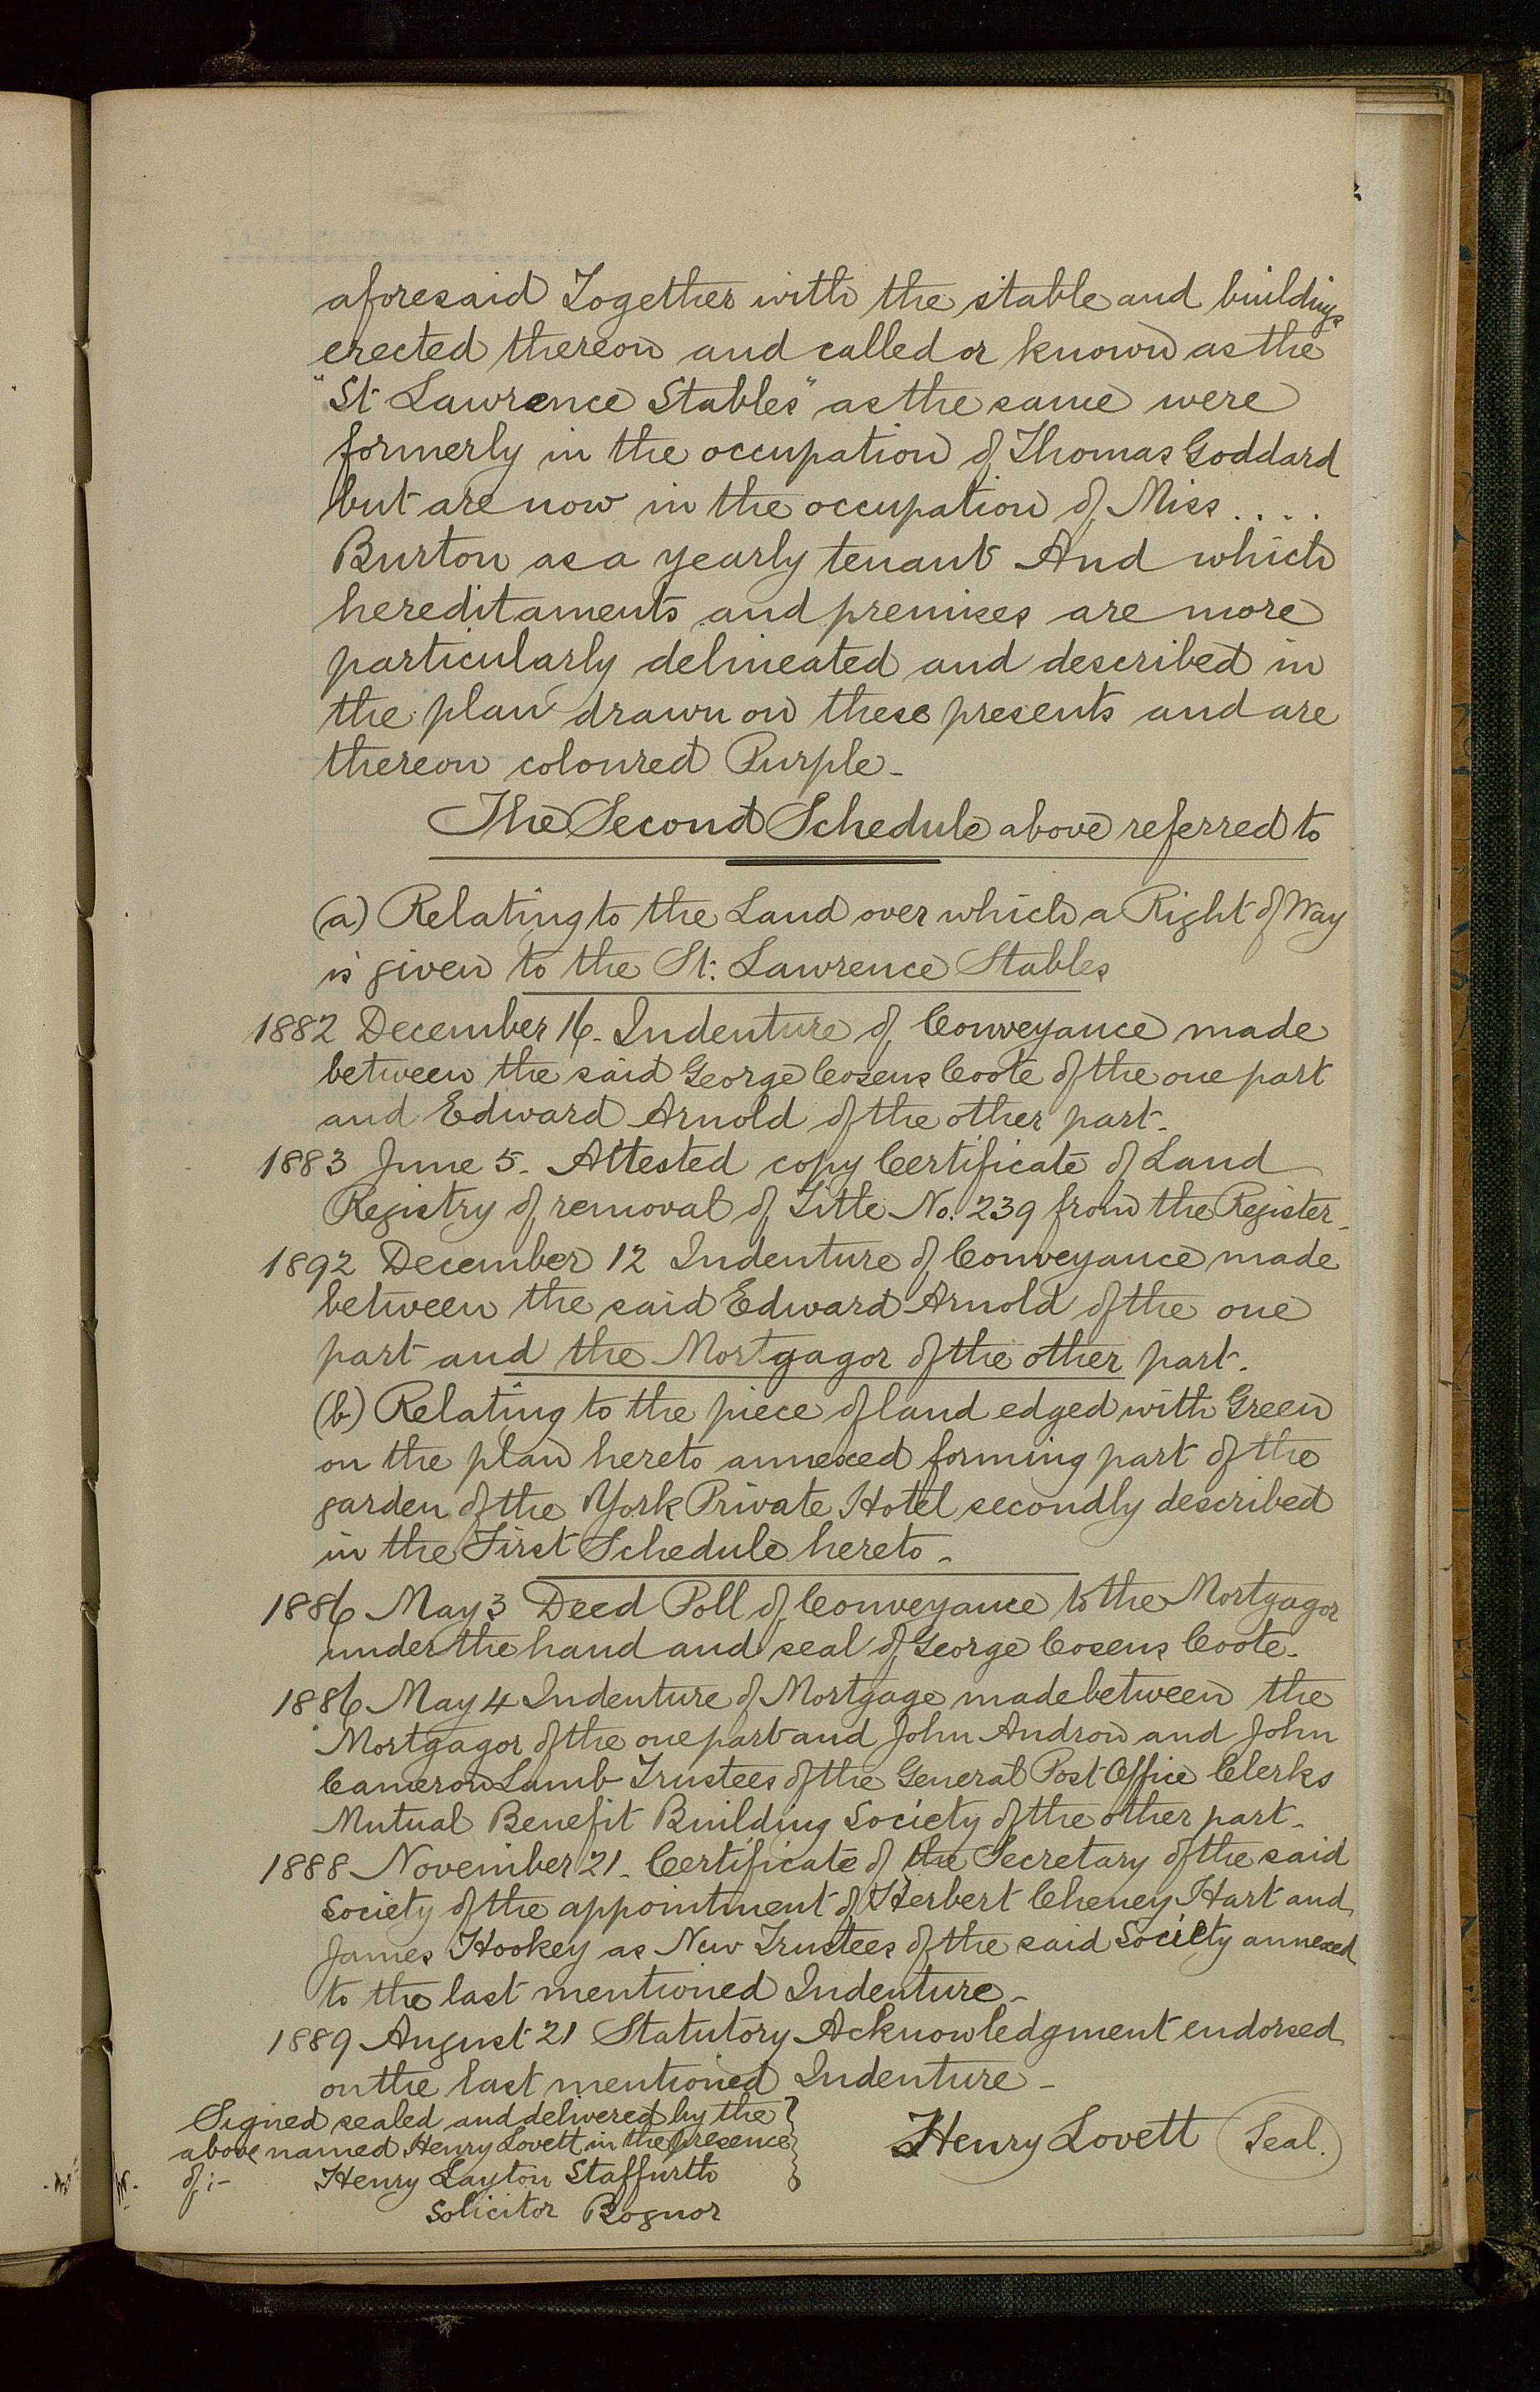 aforesaid Together with the stable and buildings
erected thereon and called or known as the
"St Lawrence Stables" as the same were
formerly in the occupation of Thomas Goddard
but are now in the occupation of Miss ....
Burton as a yearly tenant And which
hereditaments and premises are more
particularly delineated and described in
the plan drawn on these presents and are
thereon coloured Purple -
The Second Schedule above referred to
(a) Relating to the Land over which a Right of Way
is given to the St: Lawrence Stables
1882 December 16 - Indenture of Conveyance made
between the said George Cosens Coote of the one part
and Edward Arnold of the other part -
1883 June 5 - Attested copy Certificate of Land
Registry of removal of Title No. 239 from the Register -
1892 December 12 Indenture of Conveyance made
between the said Edward Arnold of the one
part and the Mortgagor of the other part -
(b) Relating to the piece of land edged with Green
on the plan hereto annexed forming part of the
garden of the York Private Hotel secondly described
in the First Schedule hereto -
1886 May 3 Deed Poll of Conveyance to the Mortgagor
under the hand and seal of George Cosens Coote -
1886 May 4 Indenture of Mortgage made between the
Mortgagor of the one part and John Androw and John
Cameron Lamb Trustees of the General Post Office Clerks
Mutual Benefit Building Society of the other part -
1888 November 21 - Certificate of the Secretary of the said
Society of the appointment of Herbert Cheney Hart and
James Hookey as New Trustees of the said Society annexed
to the last mentioned Indenture -
1889 August 21 Statutory Acknowledgment endorsed
on the last mentioned Indenture -
Signed sealed and delivered by the
above named Henry Lovett in the presence
of :- Henry Layton Staffurth
Solicitor Bognor
Henry Lovett Seal.